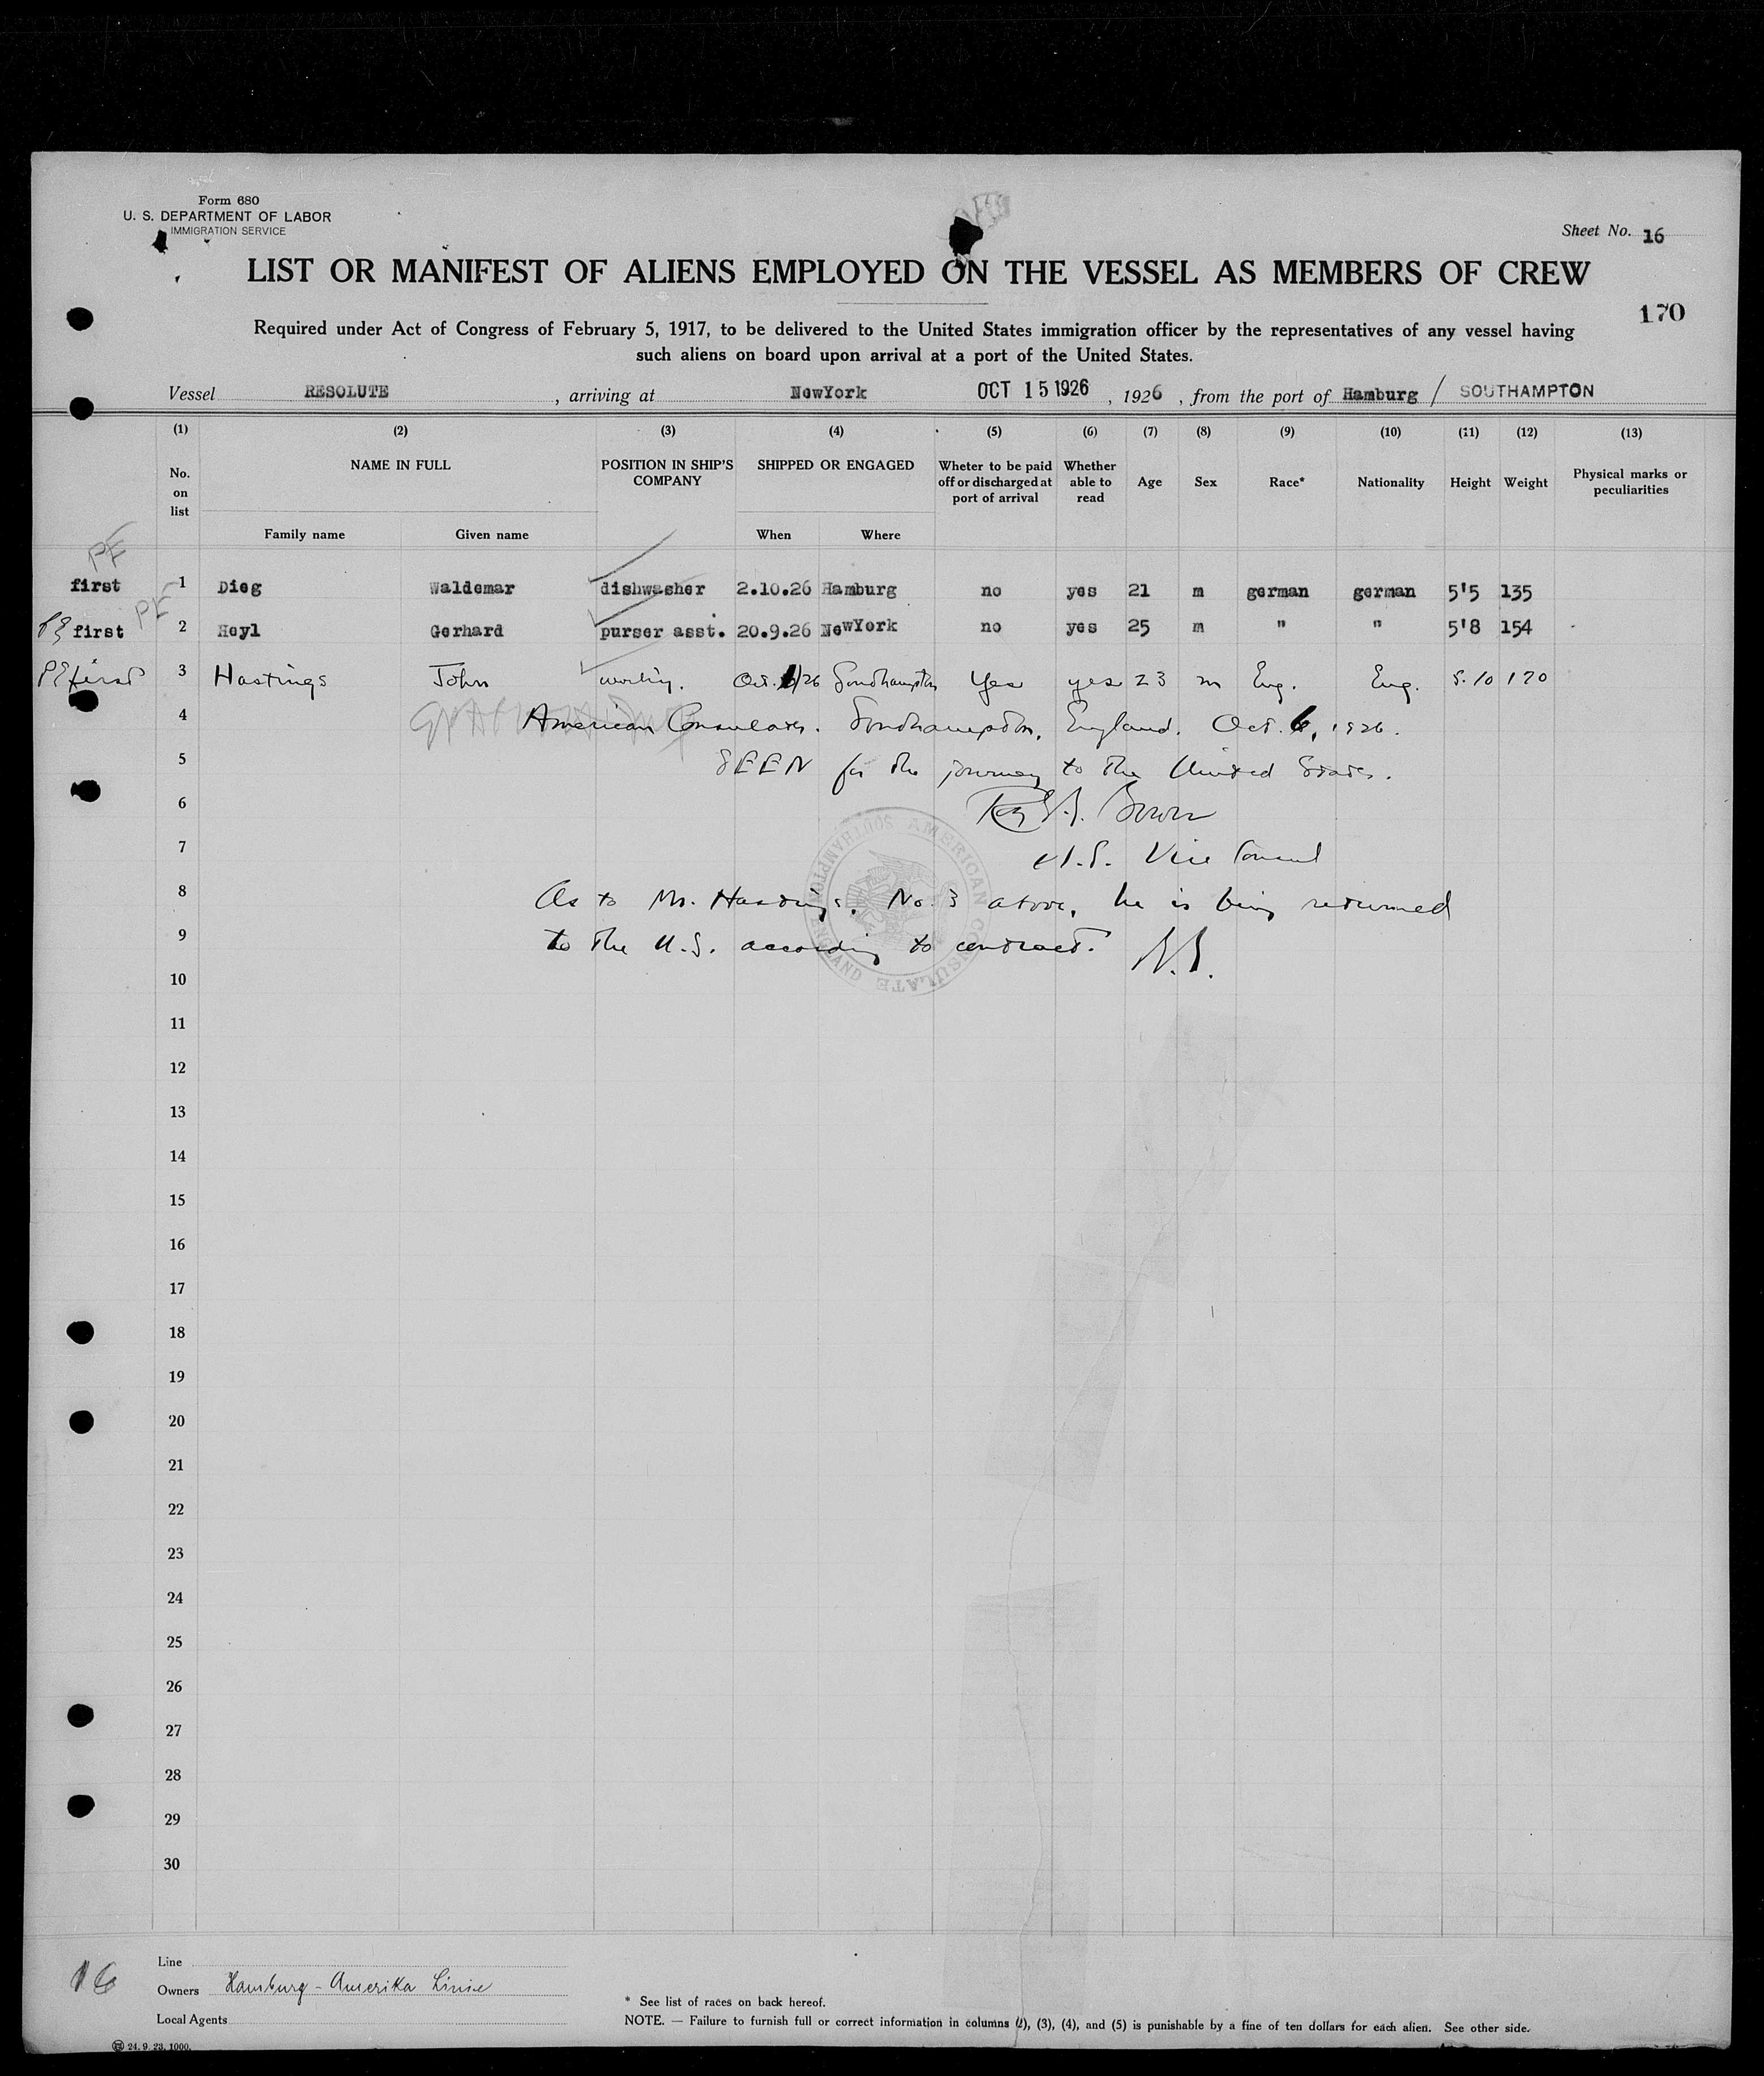 Form 680
U. S. DEPARTMENT OF LABOR
IMMIGRATION SERVICE
Sheet No. 16
LIST OR MANIFEST OF ALIENS EMPLOYED ON THE VESSEL AS MEMBERS OF CREW
170
Required under Act of Congress of February 5, 1917, to be delivered to the United States immigration officer by the representatives of any vessel having
such aliens on board upon arrival at a port of the United States.
Vessel RESOLUTE , arriving at NewYork OCT 15 1926 , 1926 , from the port of Hamburg / SOUTHAMPTON
(1) (2) (3) (4) (5) (6) (7) (8) (9) (10) (11) (12) (13)
No. on list NAME IN FULL POSITION IN SHIP'S COMPANY SHIPPED OR ENGAGED Wheter to be paid off or discharged at port of arrival Whether able to read Age Sex Race* Nationality Height Weight Physical marks or peculiarities
Family name Given name When Where
PE
first 1 Dieg Waldemar dishwasher 2.10.26 Hamburg no yes 21 m german german 5'5 135
PE
PE first 2 Heyl Gerhard purser asst. 20.9.26 NewYork no yes 25 m " " 5'8 154
PE first 3 Hastings John Oct. 6/26 Southampton Yes yes 23 m Eng. Eng. 5.10 170
4 American Consulate. Southampton, England. Oct. 6, 1926.
5 SEEN for the journey to the United States.
6 Bower
7 U.S. Vice Consul
AMERICAN CONSULATE SOUTHAMPTON ENGLAND
8 As to Mr. Hastings, No. 3 above, he is being returned
9 to the U.S. according to contract.
10
11
12
13
14
15
16
17
18
19
20
21
22
23
24
25
26
27
28
29
30
16
Line
Owners Hamburg - Amerika Linie
Local Agents
* See list of races on back hereof.
NOTE. — Failure to furnish full or correct information in columns (2), (3), (4), and (5) is punishable by a fine of ten dollars for each alien. See other side.
24. 9. 23. 1000.